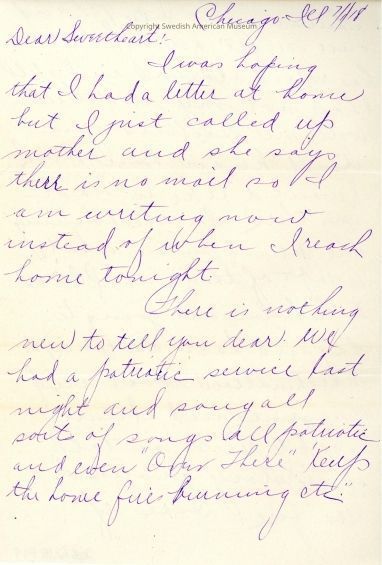 Copyright Swedish American Museum
Chicago Ill 7/1/18
Dear Sweetheart:-
I was hoping
that I had a letter at home
but I just called up
mother and she says
there is no mail so I
am writing now
instead of when I reach
home tonight.
There is nothing
new to tell you dear. We
had a patriotic service last
night and sang all
sorts of songs all patriotic
and even "Over There" "Keep
the home fires burning etc."